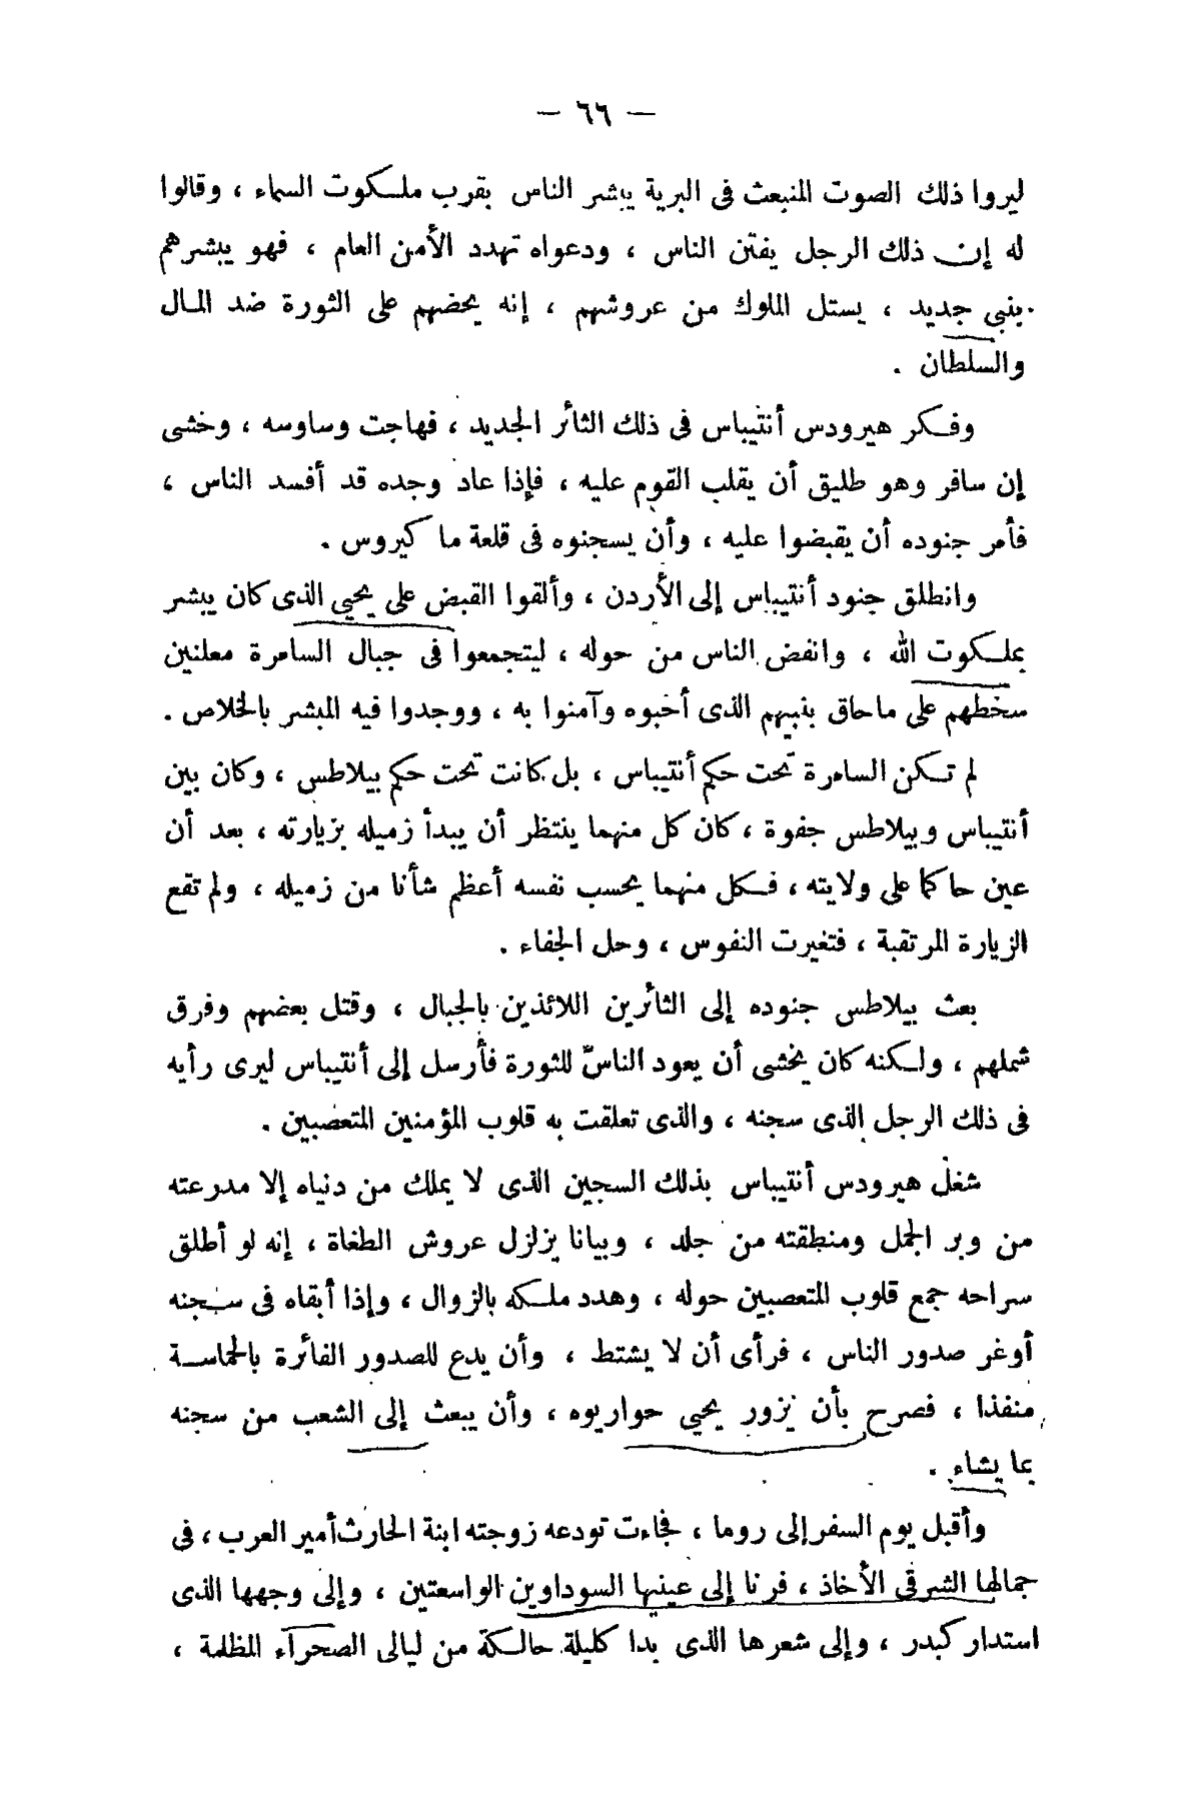 — ٦٦ —
ليروا ذلك الصوت المنبعث فى البرية يبشر الناس بقرب ملكوت السماء ، وقالوا
له إن ذلك الرجل يفتن الناس ، ودعواه تهدد الأمن العام ، فهو يبشرهم
بنبى جديد ، يستل الملوك من عروشهم ، إنه يحضهم على الثورة ضد المال
والسلطان .
وفكر هيرودس أنتيباس فى ذلك الثائر الجديد ، فهاجت وساوسه ، وخشى
إن سافر وهو طليق أن يقلب القوم عليه ، فإذا عاد وجده قد أفسد الناس ،
فأمر جنوده أن يقبضوا عليه ، وأن يسجنوه فى قلعة ما كيروس .
وانطلق جنود أنتيباس إلى الأردن ، وألقوا القبض على يحيى الذى كان يبشر
بملكوت الله ، وانفض الناس من حوله ، ليتجمعوا فى جبال السامرة معلنين
سخطهم على ماحاق بنبيهم الذى أحبوه وآمنوا به ، ووجدوا فيه المبشر بالخلاص .
لم تكن السامرة تحت حكم أنتيباس ، بل كانت تحت حكم بيلاطس ، وكان بين
أنتيباس وبيلاطس جفوة ، كان كل منهما ينتظر أن يبدأ زميله بزيارته ، بعد أن
عين حاكما على ولايته ، فكل منهما يحسب نفسه أعظم شأنا من زميله ، ولم تقع
الزيارة المرتقبة ، فتغيرت النفوس ، وحل الجفاء .
بعث بيلاطس جنوده إلى الثائرين اللائذين بالجبال ، وقتل بعضهم وفرق
شملهم ، ولكنه كان يخشى أن يعود الناس للثورة فأرسل إلى أنتيباس ليرى رأيه
فى ذلك الرجل الذى سجنه ، والذى تعلقت به قلوب المؤمنين المتعصبين .
شغل هيرودس أنتيباس بذلك السجين الذى لا يملك من دنياه إلا مدرعته
من وبر الجمل ومنطقته من جلد ، وبيانا يزلزل عروش الطغاة ، إنه لو أطلق
سراحه جمع قلوب المتعصبين حوله ، وهدد ملكه بالزوال ، وإذا أبقاه فى سجنه
أوغر صدور الناس ، فرأى أن لا يشتط ، وأن يدع للصدور الفائرة بالحماسة
منفذا ، فصرح بأن يزور يحيى حواريوه ، وأن يبعث إلى الشعب من سجنه
بما يشاء .
وأقبل يوم السفر إلى روما ، فجاءت تودعه زوجته ابنة الحارث أمير العرب ، فى
جمالها الشرقى الأخاذ ، فرنا إلى عينيها السوداوين الواسعتين ، وإلى وجهها الذى
استدار كبدر ، وإلى شعرها الذى بدا كليلة حالكة من ليالى الصحراء المظلمة ،